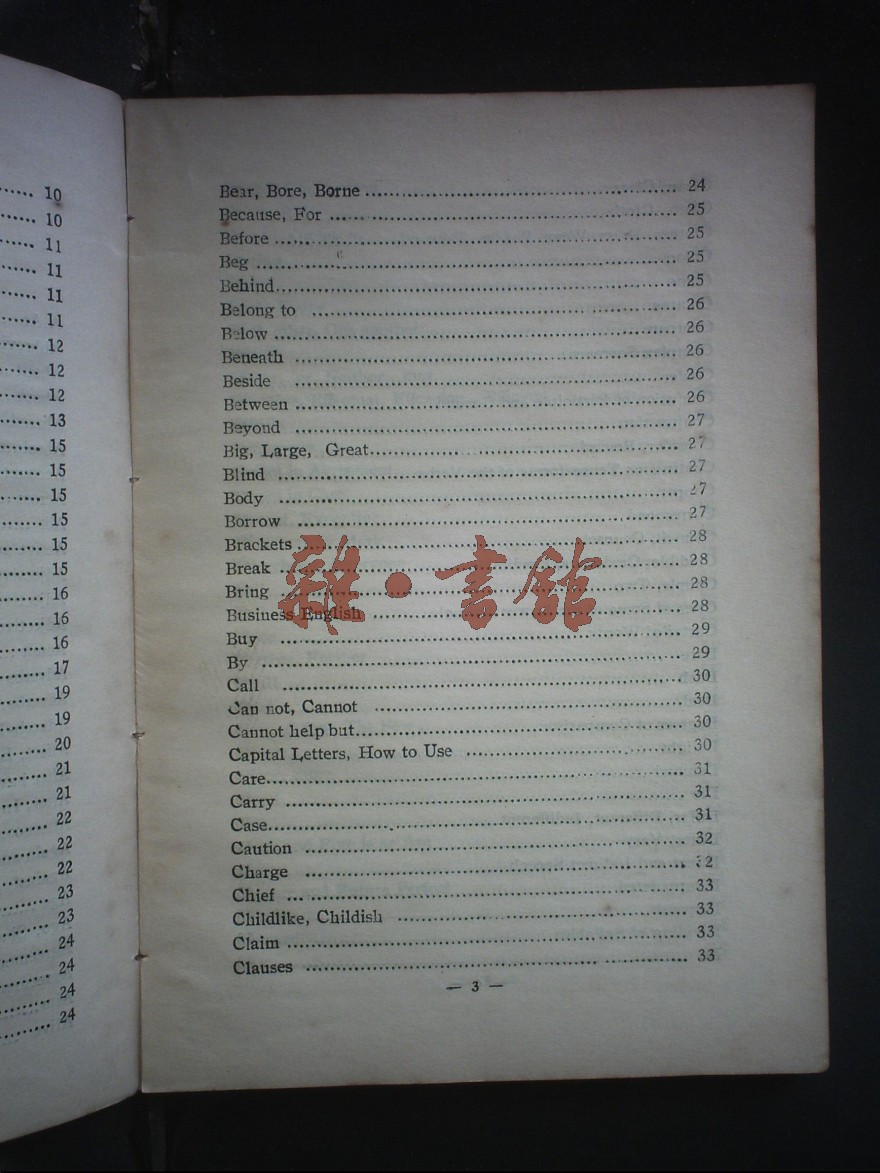 10
10
11
11
11
11
12
12
12
13
15
15
15
15
15
15
16
16
16
17
19
19
20
21
21
22
22
22
23
23
24
24
24
24
Bear, Bore, Borne 24
Because, For 25
Before 25
Beg 25
Behind 25
Belong to 26
Below 26
Beneath 26
Beside 26
Between 26
Beyond 27
Big, Large, Great 27
Blind 27
Body 27
Borrow 27
Brackets 28
Break 28
Bring 28
Business English 28
Buy 29
By 29
Call 30
Can not, Cannot 30
Cannot help but 30
Capital Letters, How to Use 30
Care 31
Carry 31
Case 31
Caution 32
Charge 32
Chief 33
Childlike, Childish 33
Claim 33
Clauses 33
— 3 —
雜·書館